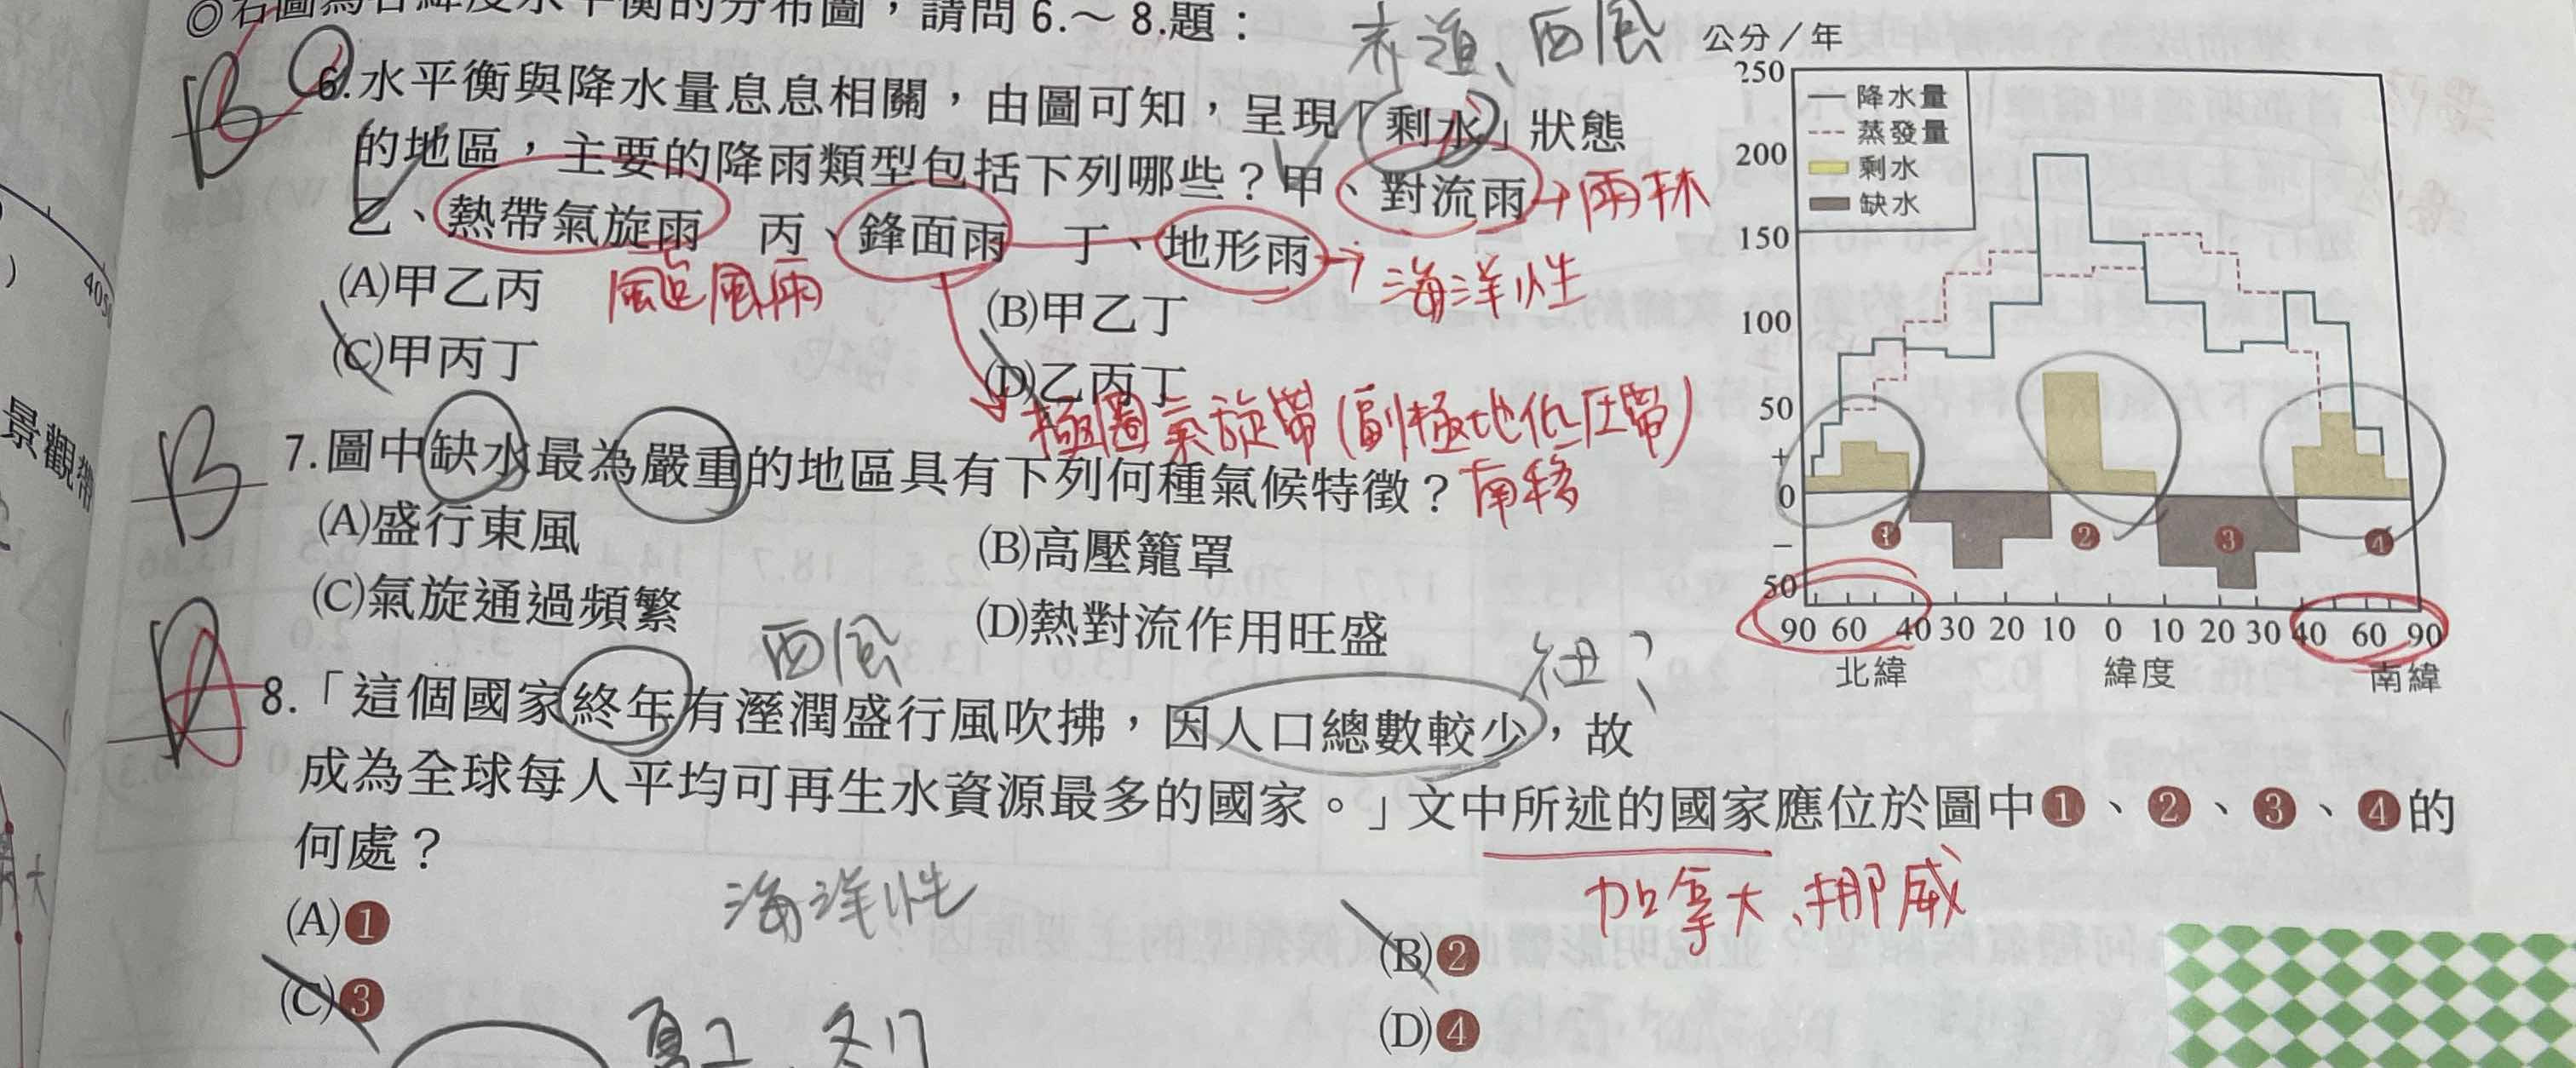 ◎右圖為各緯度水平衡的分布圖，請問 6.～ 8.題：
赤道、西風
B C
6.水平衡與降水量息息相關，由圖可知，呈現「剩水」狀態
的地區，主要的降雨類型包括下列哪些？甲、對流雨→雨林
乙、熱帶氣旋雨 丙、鋒面雨 丁、地形雨→海洋性
颱風雨
(A)甲乙丙 (B)甲乙丁
(C)甲丙丁 (D)乙丙丁
極圈氣旋帶(副極地低壓帶)
南移
B
7.圖中缺水最為嚴重的地區具有下列何種氣候特徵？
(A)盛行東風 (B)高壓籠罩
(C)氣旋通過頻繁 (D)熱對流作用旺盛
西風
紐?
D A
8.「這個國家終年有溼潤盛行風吹拂，因人口總數較少，故
成為全球每人平均可再生水資源最多的國家。」文中所述的國家應位於圖中❶、❷、❸、❹的
何處？
加拿大、挪威
海洋性
(A)❶ (B)❷
(C)❸ (D)❹
公分／年
250
200
150
100
50
+
0
−
50
降水量
蒸發量
剩水
缺水
❶ ❷ ❸ ❹
90 60 40 30 20 10 0 10 20 30 40 60 90
北緯 緯度 南緯
景觀帶
40S